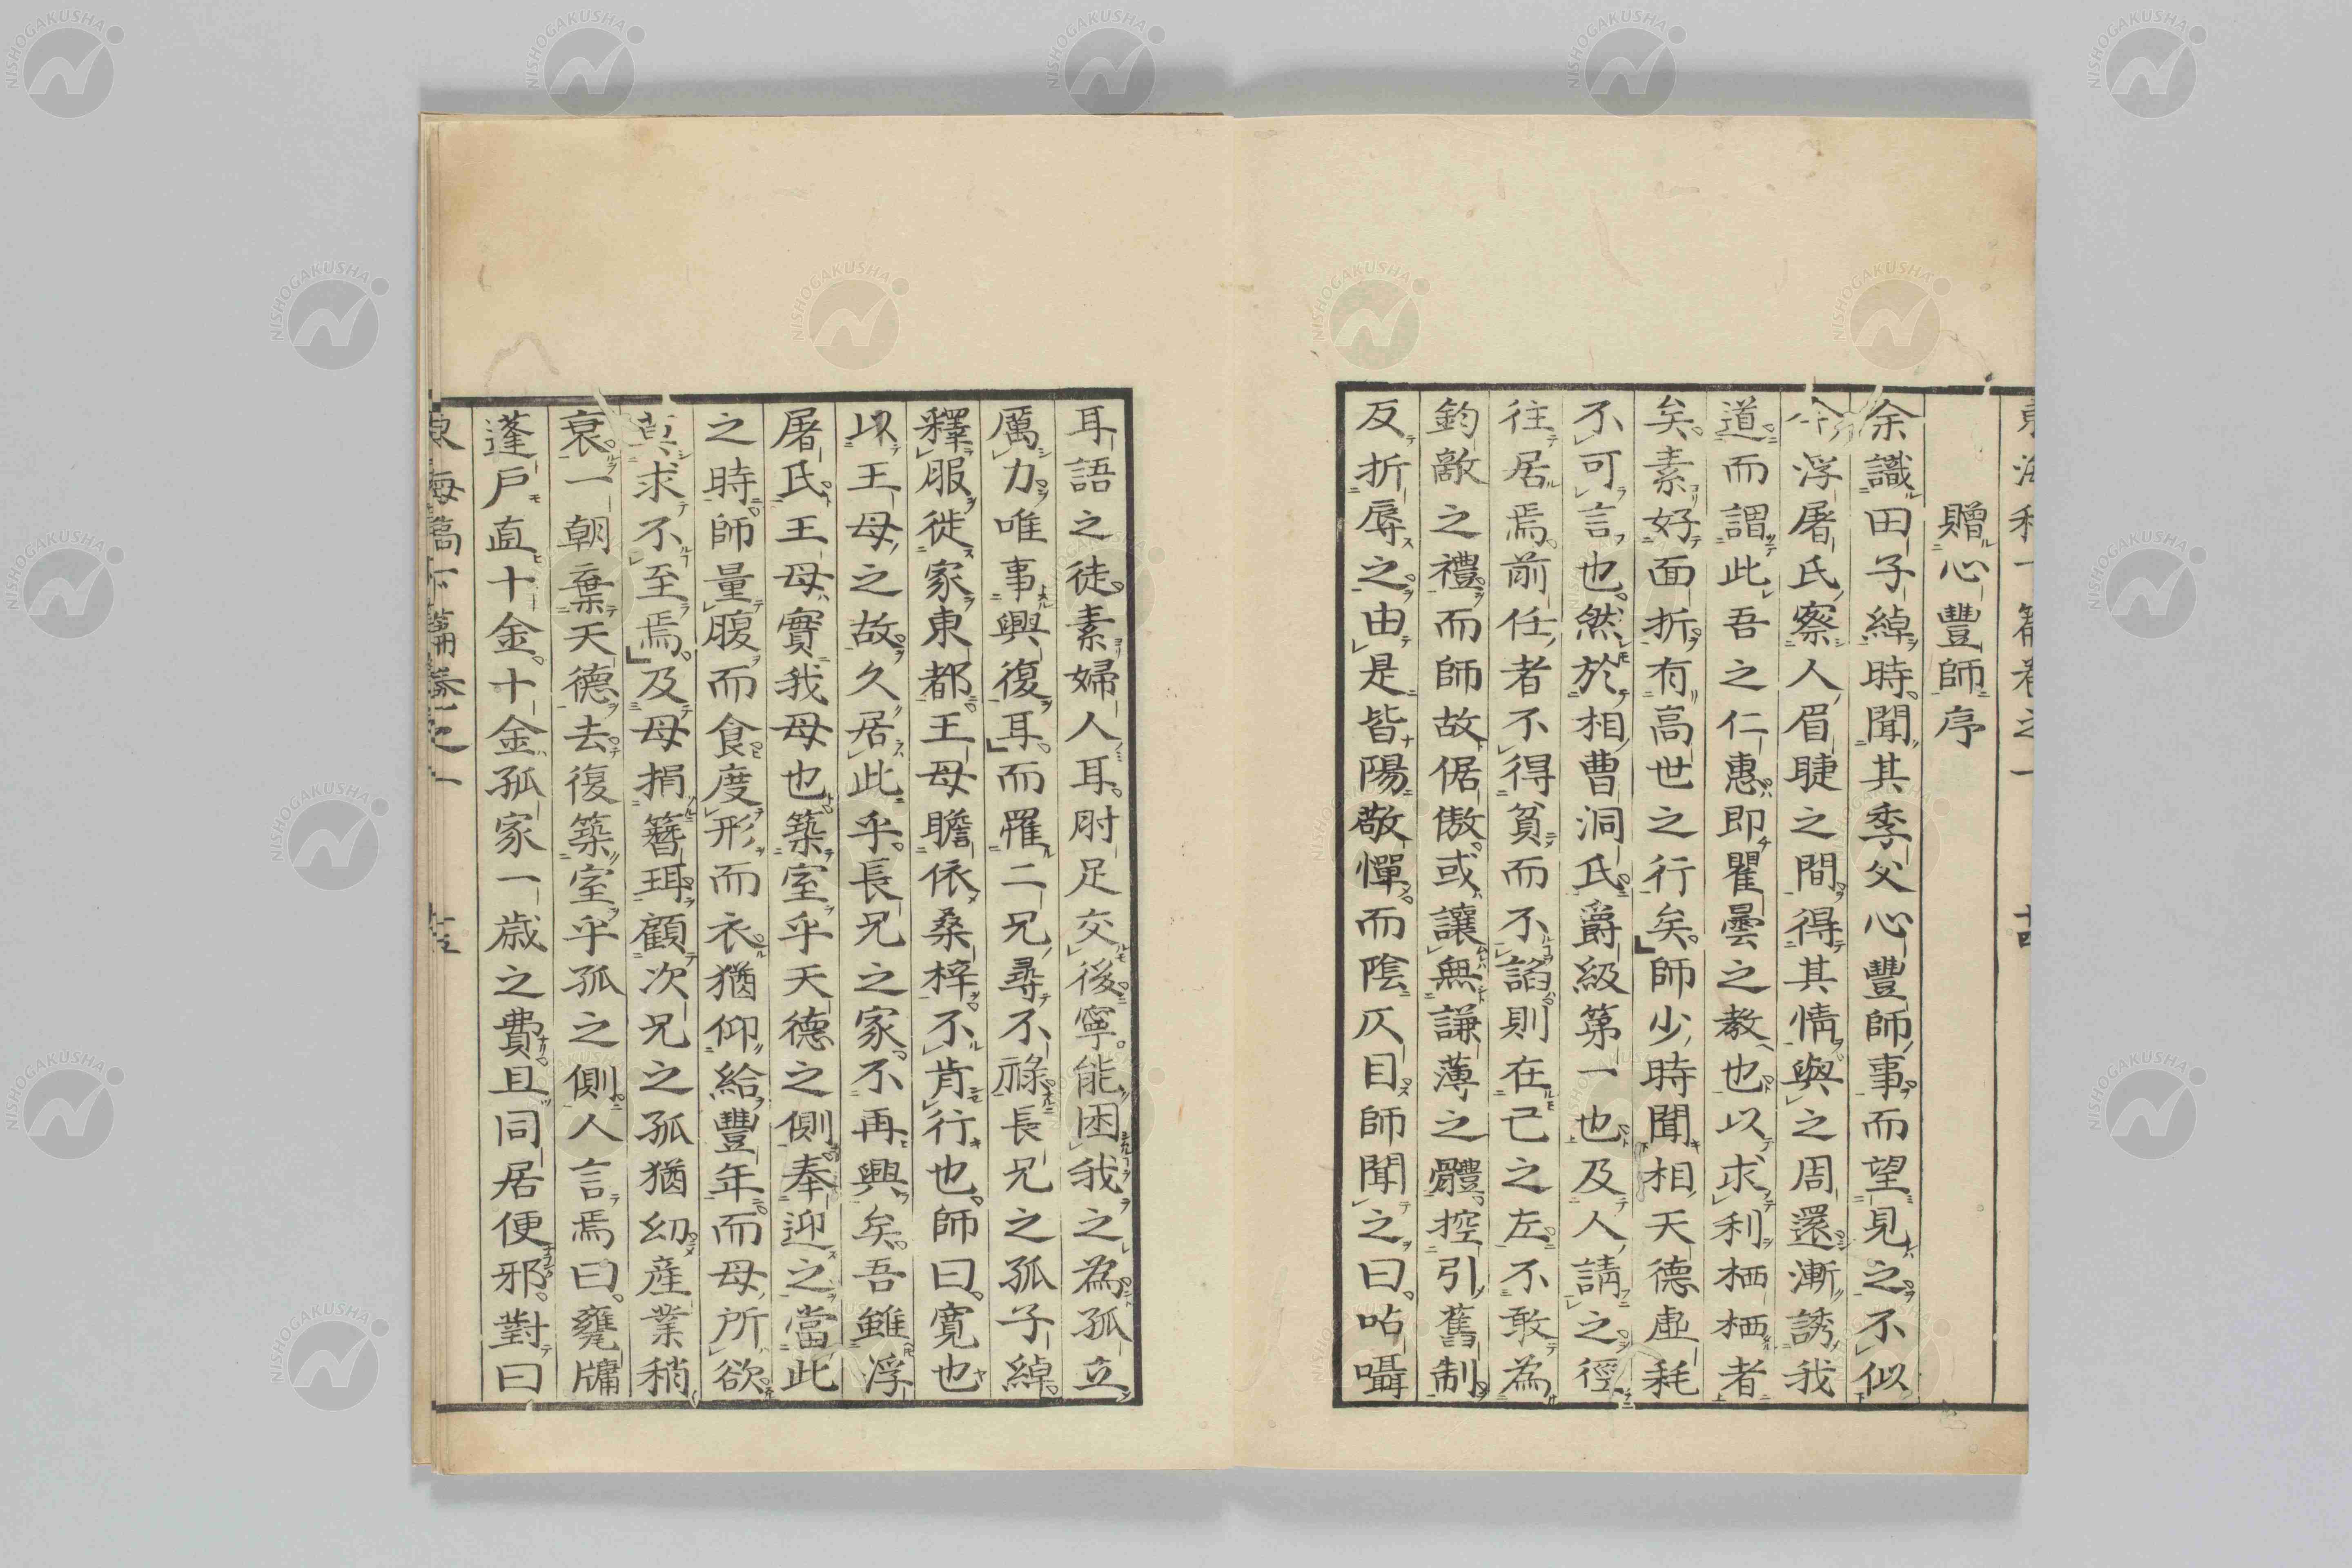 贈心豐師序
余識田子綽時聞其季父心豐師事而望見之不似
浮屠氏察人眉睫之間得其情與之周還漸誘我
道而謂此吾之仁惠即瞿曇之教也以求利栖栖者
矣素好面折有高世之行矣師少時聞相天德虛耗
不可言也然於相曹洞氏爵級第一也及人請之徑
往居焉前任者不得貧而不諂則在己之左不敢為
鈞敵之禮而師故倨傲或讓無謙薄之體控引舊制
反折辱之由是皆陽敬憚而陰仄目師聞之曰呫囁
耳語之徒素婦人耳肘足交後寧能困我之為孤立
厲力唯事興復耳而罹二兄尋不祿長兄之孤子綽
釋服徙家東都王母瞻依桑梓不肯行也師曰寬也
以王母之故久居此乎長兄之家不再興矣吾雖浮
屠氏王母實我母也築室乎天德之側奉迎之當此
之時師量腹而食度形而衣猶仰給豐年而母所欲
莫求不至焉及母捐簪珥顧次兄之孤猶幼產業稍
衰一朝棄天德去復築室乎孤之側人言焉曰甕牖
蓬戶直十金十金孤家一歲之費且同居便邪對曰